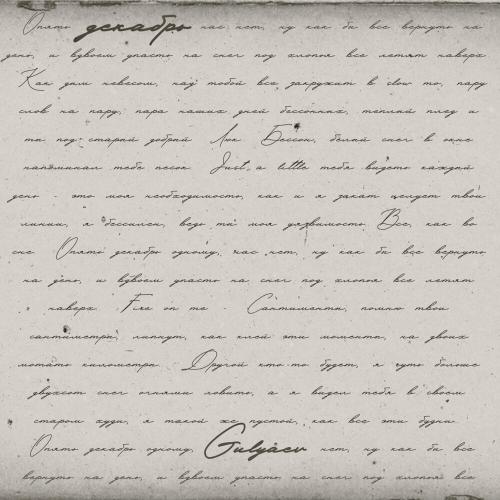 Опять декабрь нас нет, ну как бы все вернуть на
день, и вдвоем упасть на снег под хлопья все летят наверх
Как дым невесом, над тобой все закружит в slow mo, пару
слов на пару, пара наших дней бессонных, теплый плед и
ты под старый добрый Люк Бессон, белый снег в окне
напоминал тебе песок Just a little тебя видеть каждый
день - это моя необходимость, как и я закат целует твои
линии, я бессилен, ведь ты моя уязвимость Все, как во
сне Опять декабрь одному, нас нет, ну как бы все вернуть
на день, и вдвоем упасть на снег под хлопья все летят
наверх Fire on me Сантименты, помню твои
сантиметры, липнут, как клей эти моменты, на двоих
мотать километры Другой кто-то будет, я чуть больше
двухсот снег огнями ловить, а я видел тебя в своем
старом худи, я такой же пустой, как все эти будни
Опять декабрь одному, Gulyaev нет, ну как бы все
вернуть на день, и вдвоем упасть на снег под хлопья все